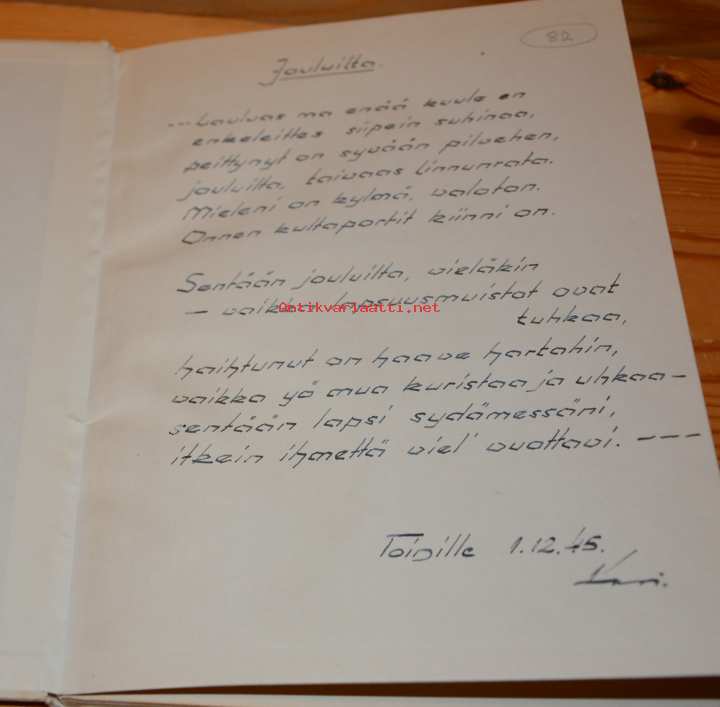 82
Jouluilta.
--- Lauluas ma enää kuule en
enkeleittes siipein suhinaa,
peittynyt on syvään pilvehen,
jouluilta, taivaas linnunrata.
Mieleni on kylmä, valoton.
Onnen kultaportit kiinni on.
Sentään jouluilta, vieläkin
— vaikka lapsuusmuistot ovat
tuhkaa,
Antikvariaatti.net
haihtunut on haave hartahin,
vaikka yö mua kuristaa ja uhkaa—
sentään lapsi sydämessäni,
itkein ihmettä viel' vuottavi. ---
Toinille 1.12.45.